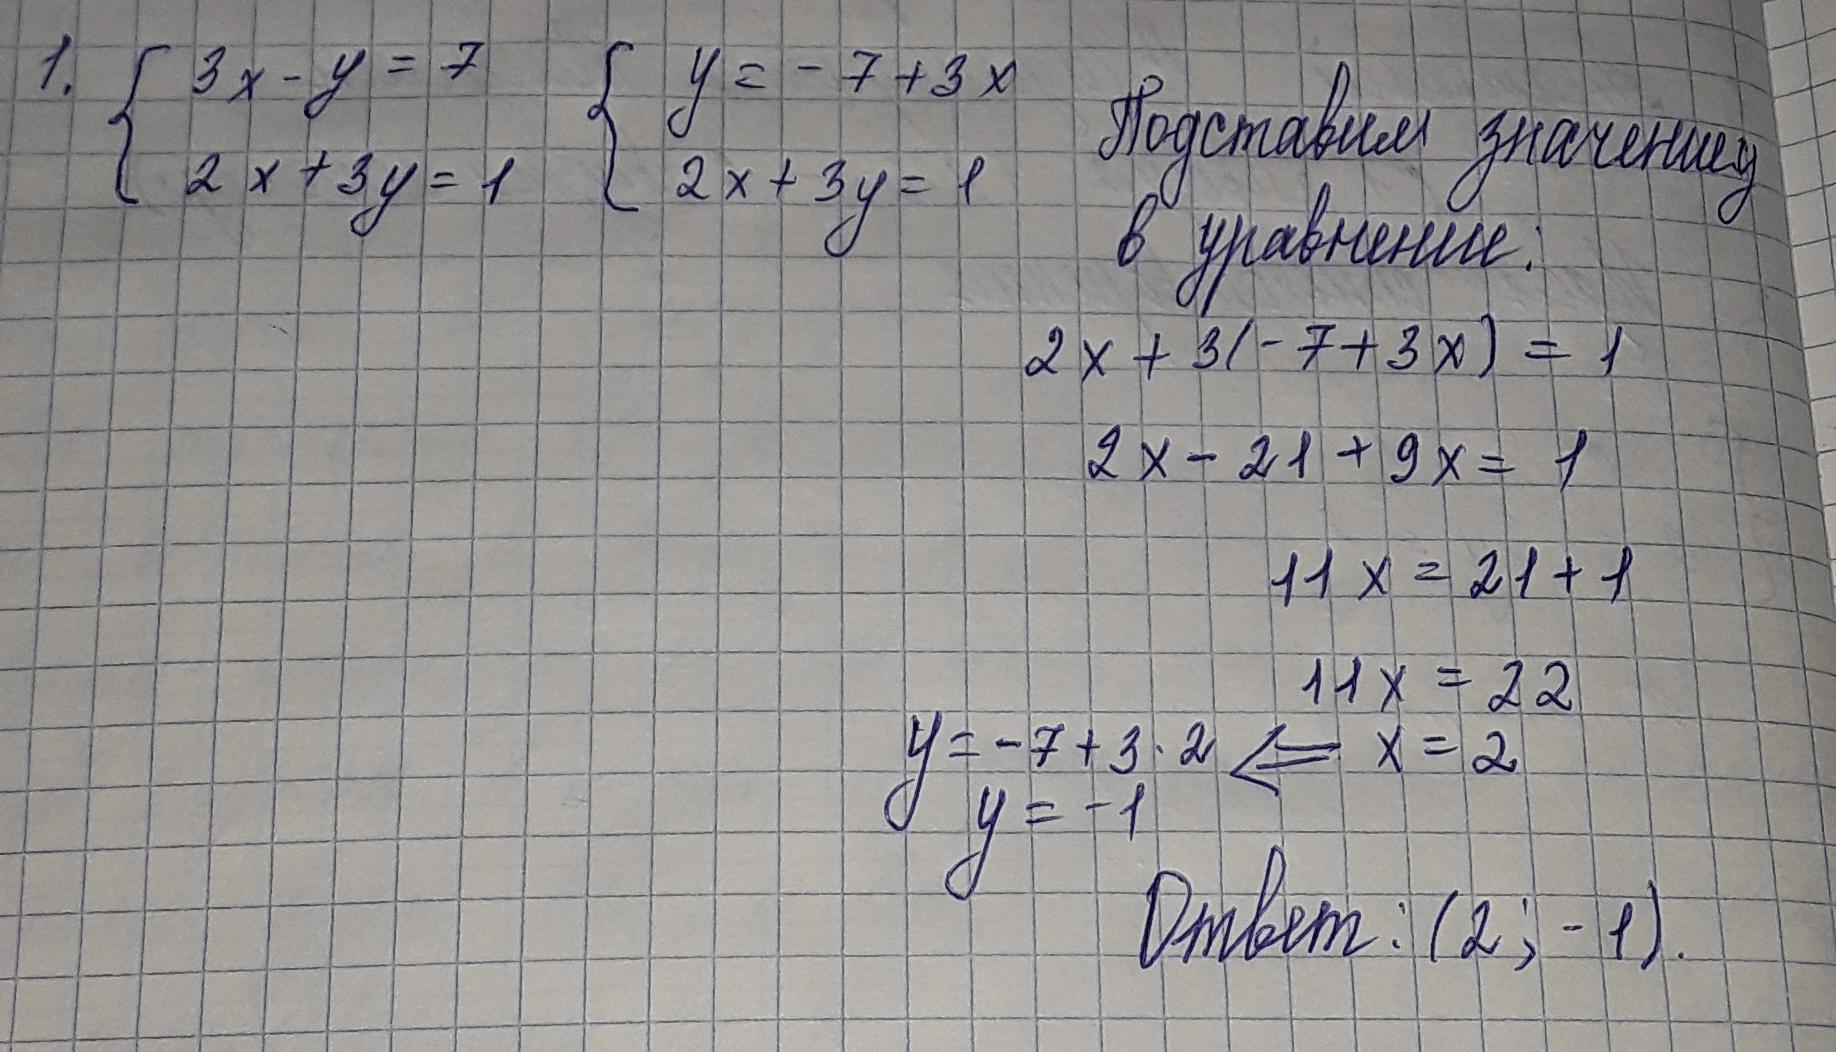 1. { 3x - y = 7 { y = - 7 + 3x
2x + 3y = 1 2x + 3y = 1
Подставим значение y
в уравнение:
2x + 3(- 7 + 3x) = 1
2x - 21 + 9x = 1
11x = 21 + 1
11x = 22
y = - 7 + 3 · 2 ⇐ x = 2
y = - 1
Ответ: (2; - 1).